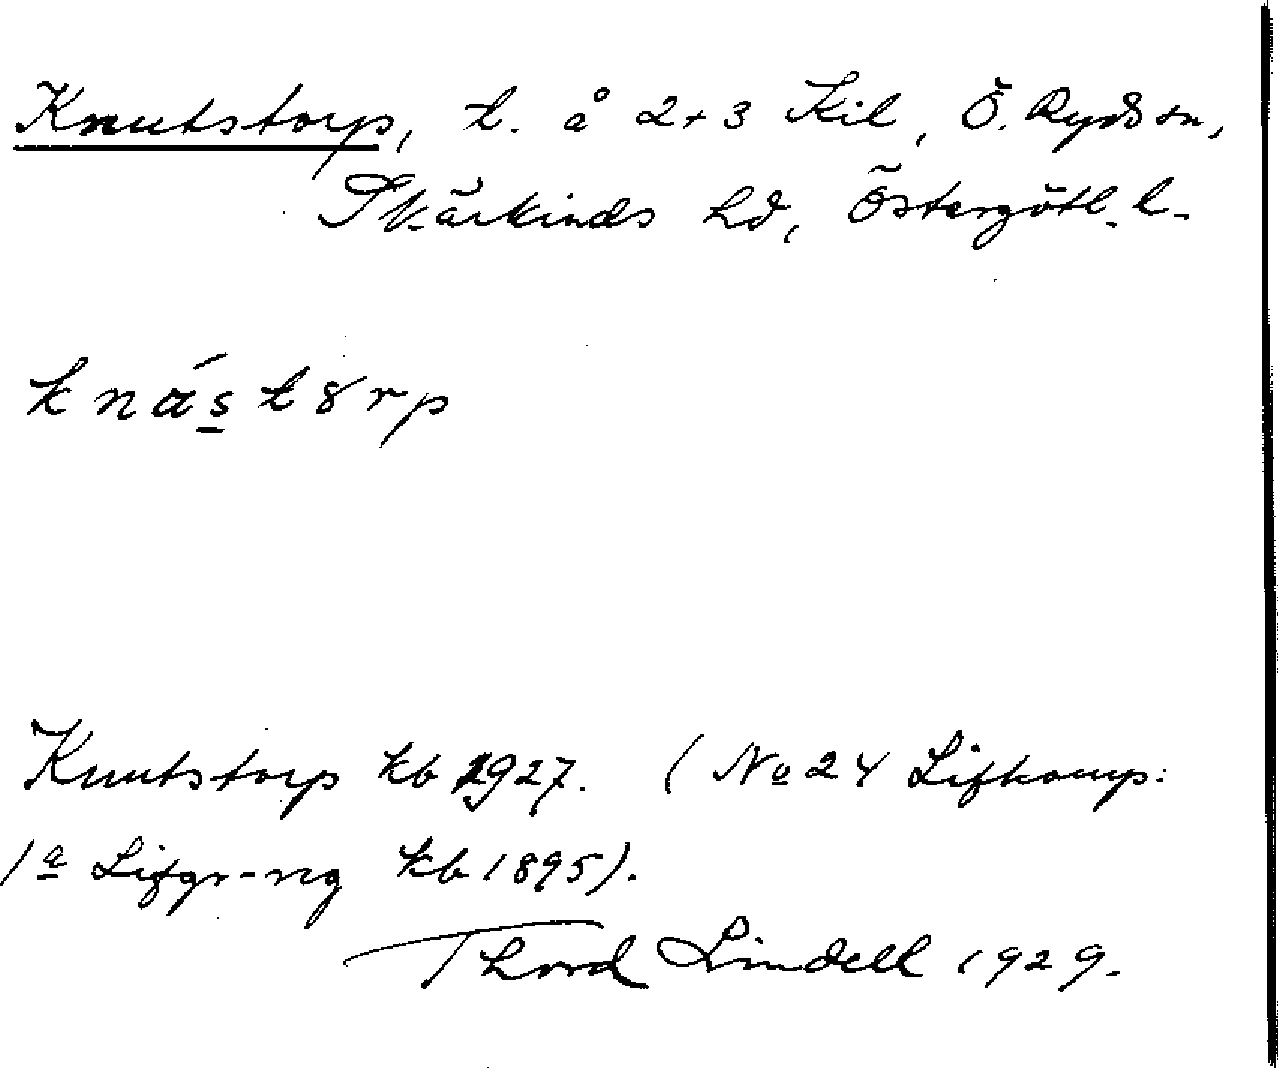 Knutstorp, t. å 2+3 Kil, Ö. Ryds sn,
Skärkinds hd, Östergötl. l.
knást8rp
Knutstorp kb 1927. (No 24 Lifkomp:
1a Lifgr-reg kb 1895).
Thord Lindell 1929.